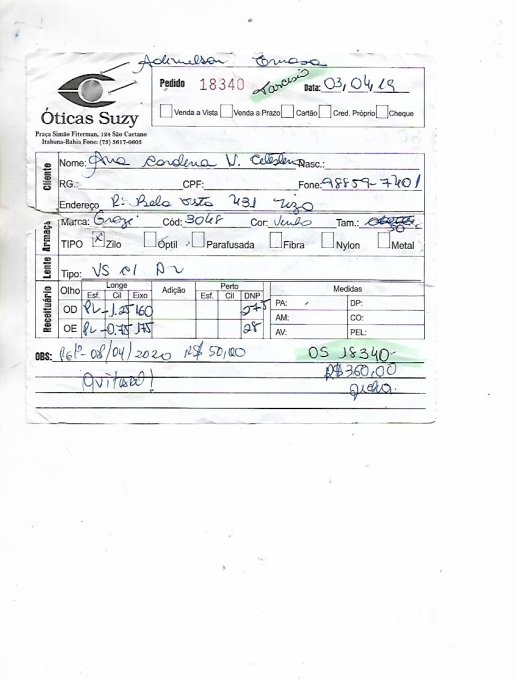 Adimelson
Pedido 18340 Tarcisio Data: 03,04,19
Óticas Suzy
Venda a Vista Venda a Prazo Cartão Cred. Próprio Cheque
Praça Simão Fiterman, 124 São Caetano
Itabuna-Bahia Fone: (73) 3617-0603
Cliente
Nome: Ana V. Nasc.:
RG.: CPF: Fone: 98859-7401
Endereço R: Bela Vista 431
Armação
Marca: Grazi Cód: 3048 Cor: Tam.: 50
TIPO x Zilo Óptil Parafusada Fibra Nylon Metal
Lente
Tipo: VS c/ AR
Receituário
Olho Longe Adição Perto Medidas
Esf. Cil Eixo Esf. Cil DNP
PA: DP:
OD PL -1.25 160 275
AM: CO:
OE PL -0.75 175 28
AV: PEL:
OBS: Pgto - 08/04/2020 R$ 50,00 OS 18340-
R$360,00
Quitado!